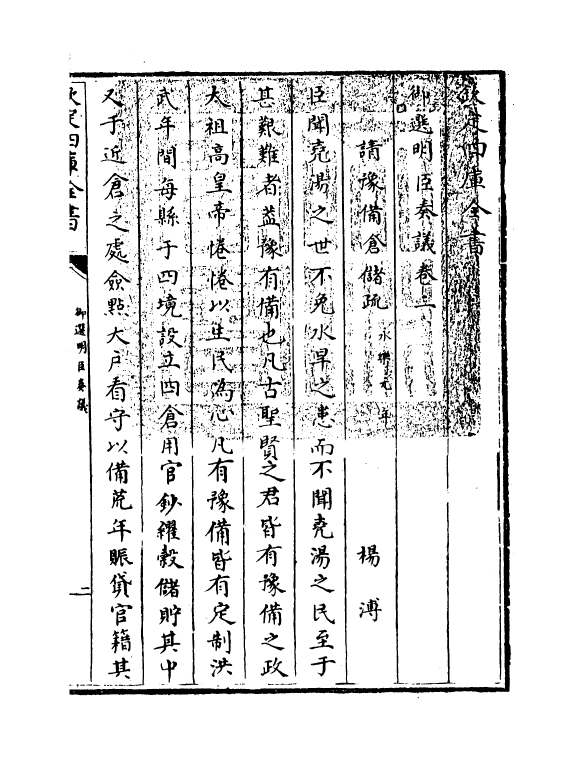 欽定四庫全書
御選明臣奏議卷二
請豫備倉儲疏永樂元年 楊溥
臣聞堯湯之世不免水旱之患而不聞堯湯之民至于
甚艱難者葢豫有備也凡古聖賢之君皆有豫備之政
太祖高皇帝惓惓以生民為心凡有豫備皆有定制洪
武年間每縣于四境設立四倉用官鈔糴穀儲貯其中
又于近倉之處僉㸃大戶看守以備荒年賑貸官籍其
欽定四庫全書
御選明臣奏議